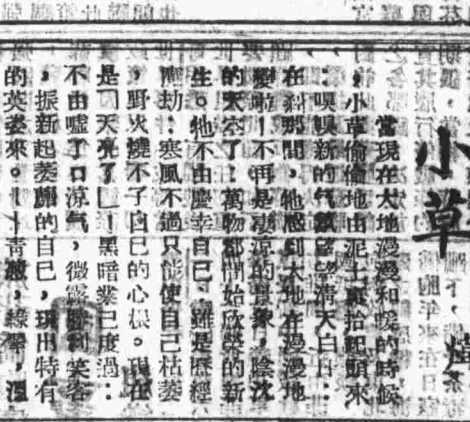 小草
當現在大地漫漫和暖的時候
，小草偷偷地由泥土裏抬起頭來
：嗅嗅新的气氛望望清天白日：
在刹那間，牠感到大地在漫漫地
變啦！不再是凄涼的景象，陰沈
的天空了：萬物都開始欣榮的新
生。牠不由慶幸自己，雖是歷經
塵劫：寒風不過只能使自己枯萎
，野火燒不了自己的心根。現在
是「天亮了」！黑暗業已度過：
不由噓了口涼气，微露勝利笑容
，振新起萎靡的自己，現出特有
的英姿來。——青嫩，綠翠，溫